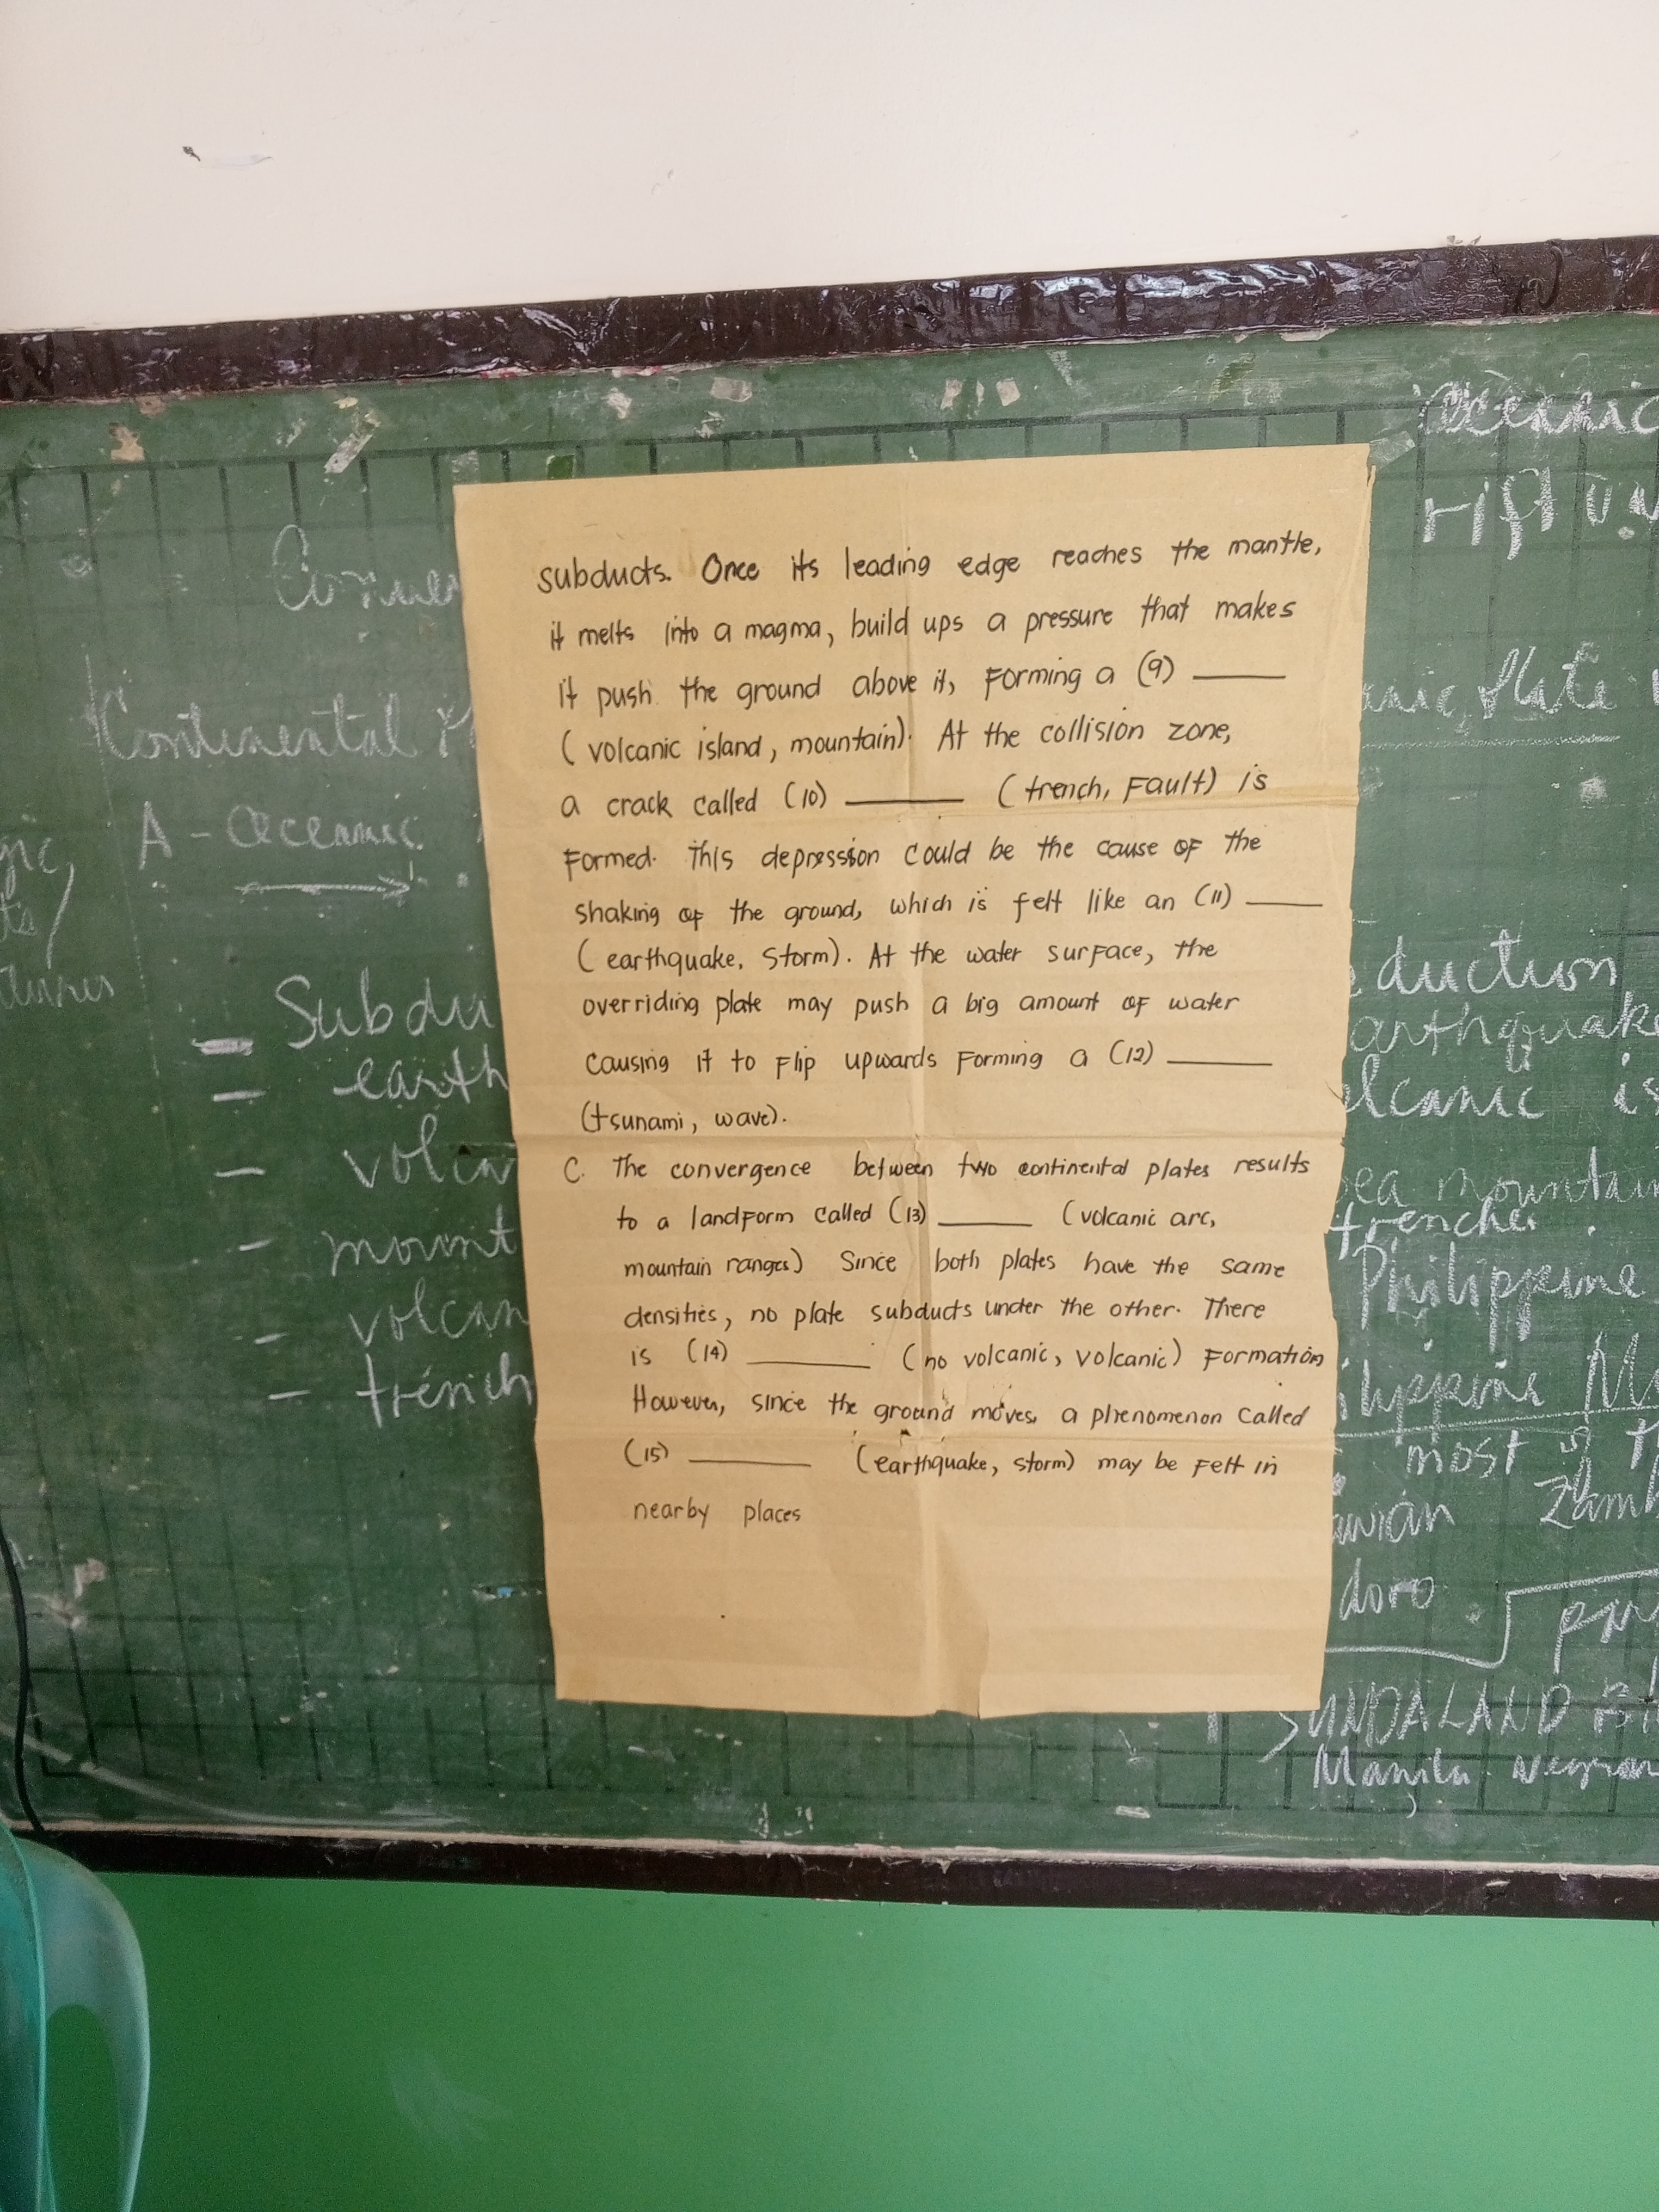 subducts. Once its leading edge reaches the mantle,
it melts into a magma, build ups a pressure that makes
it push the ground above it, forming a (9) ______
(volcanic island, mountain). At the collision zone,
a crack called (10) ______ (trench, fault) is
formed. This depression could be the cause of the
shaking of the ground, which is felt like an (11) ______
(earthquake, storm). At the water surface, the
overriding plate may push a big amount of water
causing it to flip upwards forming a (12) ______
(tsunami, wave).
C. The convergence between two continental plates results
to a landform called (13) ______ (volcanic arc,
mountain ranges) Since both plates have the same
densities, no plate subducts under the other. There
is (14) ______ (no volcanic, volcanic) formation
However, since the ground moves, a phenomenon called
(15) ______ (earthquake, storm) may be felt in
nearby places
Continental
A - Oceanic
- Subdu
- earth
- volca
- mount
- volcan
- trench
Oceanic
rift
anic plate
duction
arthquake
lcanic is
ea mountain
trenches
Philippine
ilippine M
most is
Zamb
doro
SUNDALAND B
Manila Negros